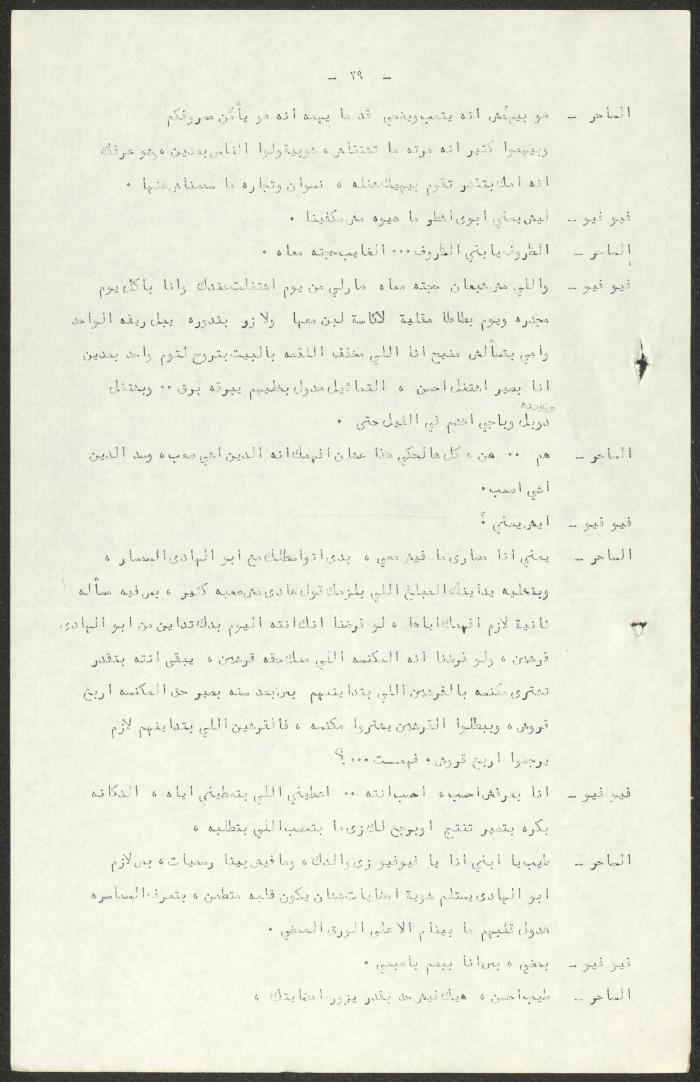 - ٢٩ -
الساحر - هو بيهمش انه يتعب ويضحي قد ما يهمه انه هو يأمّن مصروفكم
وبيهموا كثير انه مرته ما تشتغلش ، هو بيقولوا الناس بعدين ، هو عرفك
انه امك بتقدر تقوم بهيك شغله ، نسوان وتجاره ما سمعناش عنها .
فيو فيو - ليش يعني ابوي اشطر ما هيوه مش مكفينا .
الساحر - الظروف يا بني الظروف ... الغايب حجته معاه .
فيو فيو - واللي مش شبعان حجته معاه صارلي من يوم اشتغلت عندك وانا باكل يوم
مجدره ويوم بطاطا مقلية لا كاسة لبن معها ولا زر بندوره يبل ريقه الواحد
وامي بتسألش منيح انا اللي مخفف اللقمه بالبيت بتروح لتوم واحد بعدين
انا بصير اشتغل احسن ، التماثيل هدول بخليهم يبرقه برق .. وبشتغل
دوبل وباجي اخدم في الليل حتى .
الساحر - هم .. هن ، كل هالحكي هذا عشان افهمك انه الدين اشي صعب ، وسد الدين
اشي اصعب .
فيو فيو - ايش يعني ؟
الساحر - يعني انا مصاري ما فيش معي ، بدي اتواسطلك مع ابو الهادي السمسار ،
وبنخليه يداينك المبلغ اللي بلزمك قول عادي مش صعبه كثير ، بس فيه مسأله
ثانية لازم افهمك اياها ، لو فرضنا انك انته اليوم بدك تداين من ابو الهادي
قرشين ، ولو فرضنا انه المكنسه اللي معك حقه قرشين ، يبقى انته بتقدر
تشتري مكنسه بالقرشين اللي بتداينهم بس بعد سنه بصير حق المكنسه اربع
قروش ، وببطلوا القرشين يشتروا مكنسه ، فالقرشين اللي بتداينهم لازم
يرجعوا اربع قروش . فهمت ...؟
فيو فيو - انا بعرفش احسب ، احسب انته .. اعطيني اللي بتعطيني اياه ، الدكانه
بكره بتصير تنتج اوبرجع لك زي ما بتحسب اللي بتطلبه ،
الساحر - طيب يا ابني انا يا فيو فيو زي والدك ، وما فيش بينا رسميات ، بس لازم
ابو الهادي يستلم هوية امضايات عشان يكون قلبه متطمن ، بتعرف السماسره
هدول قلبهم ما بينام الا على الورق الممضي .
فيو فيو - بمضي ، بس انا ببصم باصبعي .
الساحر - طيب احسن ، هيك ليش حد بقدر يزور امضايتك ،